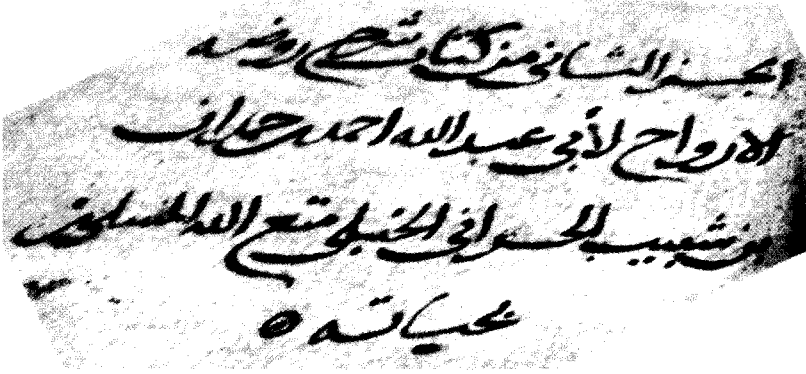 الجزء الثاني من كتاب شرح روضة
الارواح لأبي عبد الله احمد بن حمدان
بن شبيب الحراني الحنبلي متع الله المسلمين
بحياته ٥